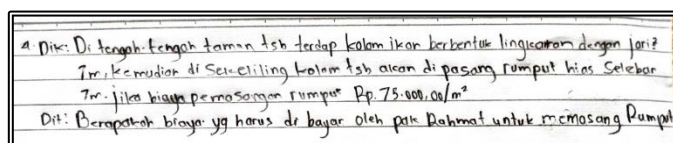 4. Dik: Di tengah-tengah taman tsb terdap kolam ikan berbentuk lingkaran dengan jari?
7m, kemudian di sekeliling kolam tsb akan di pasang rumput hias selebar
7m. jika biaya pemasangan rumput Rp. 75.000,00/m²
Dit: Berapakah biaya yg harus di bayar oleh pak Rahmat untuk memasang Rumput